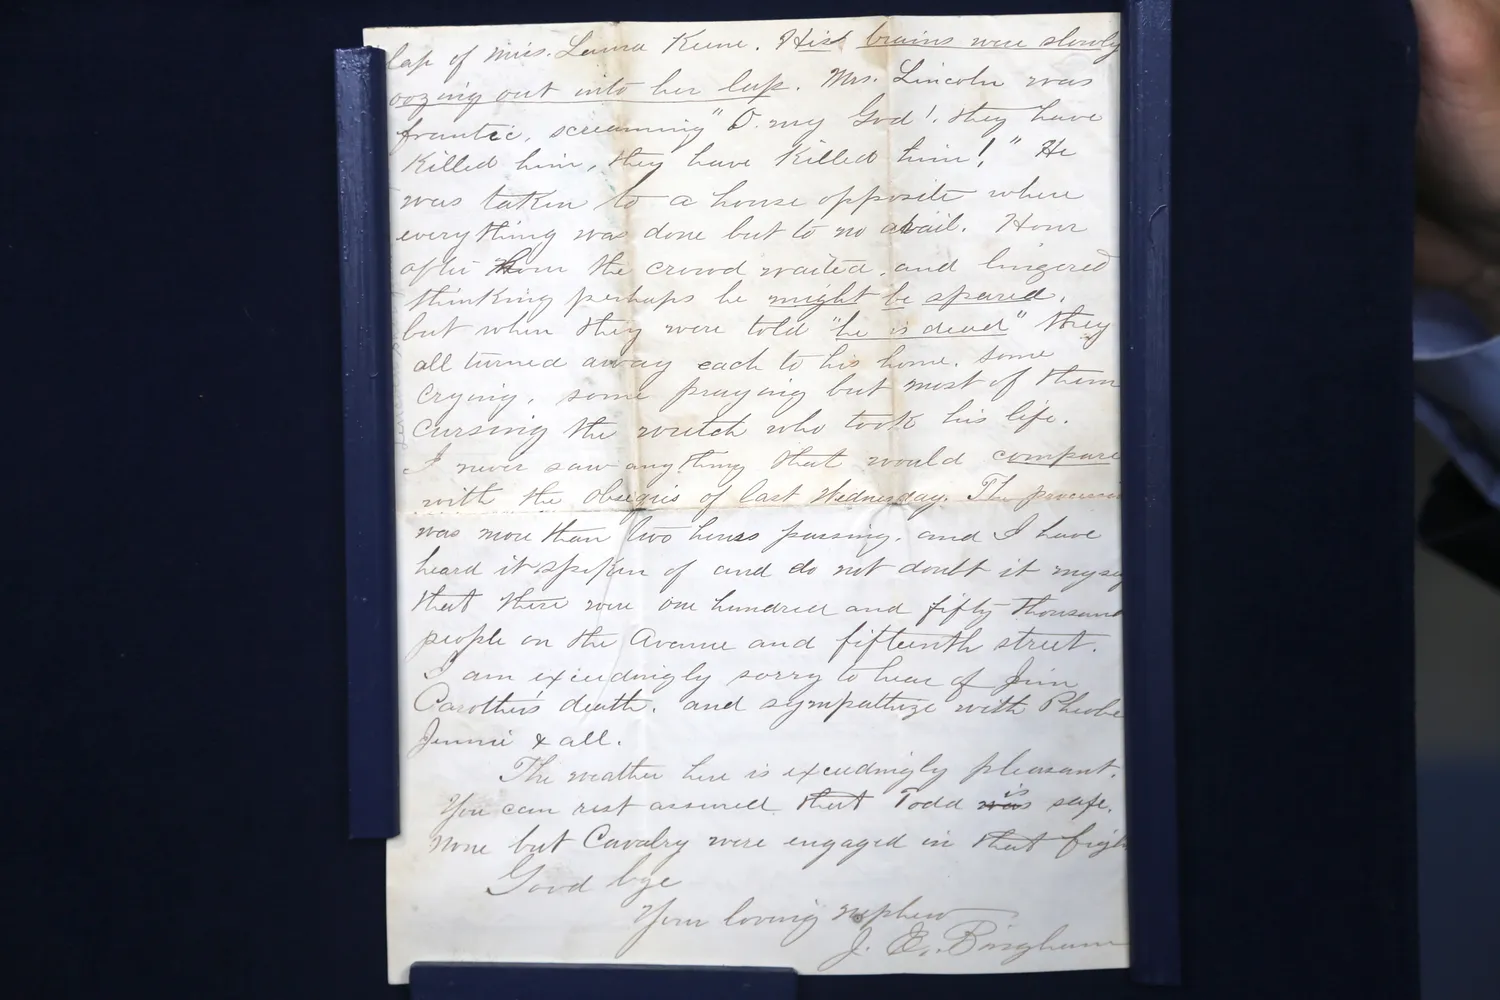 lap of Miss. Laura Keene. His brains were slowly
oozing out into her lap. Mrs. Lincoln was
frantic, screaming "O. my God!, they have
Killed him, they have Killed him!," He
was taken to a house opposite where
everything was done but to no avail. Hour
after hour the crowd waited, and lingered
thinking perhaps he might be spared,
but when they were told "he is dead" they
all turned away each to his home. Some
crying, some praying but most of them
cursing the wretch who took his life.
I never saw anything that would compare
with the obsequis of last Wednesday. The
was more than two hours passing, and I have
heard it spoken of and do not doubt it
that there were one hundred and fifty thousand
people on the Avenue and fifteenth street.
I am exceedingly sorry to hear of Jim
Carother's death, and sympathize with Phebe
Jennie & all.
The weather here is exceedingly pleasant.
You can rest assured that Todd is safe.
None but Cavalry were engaged in that
Good bye
Your loving nephew
J. E. Bingham